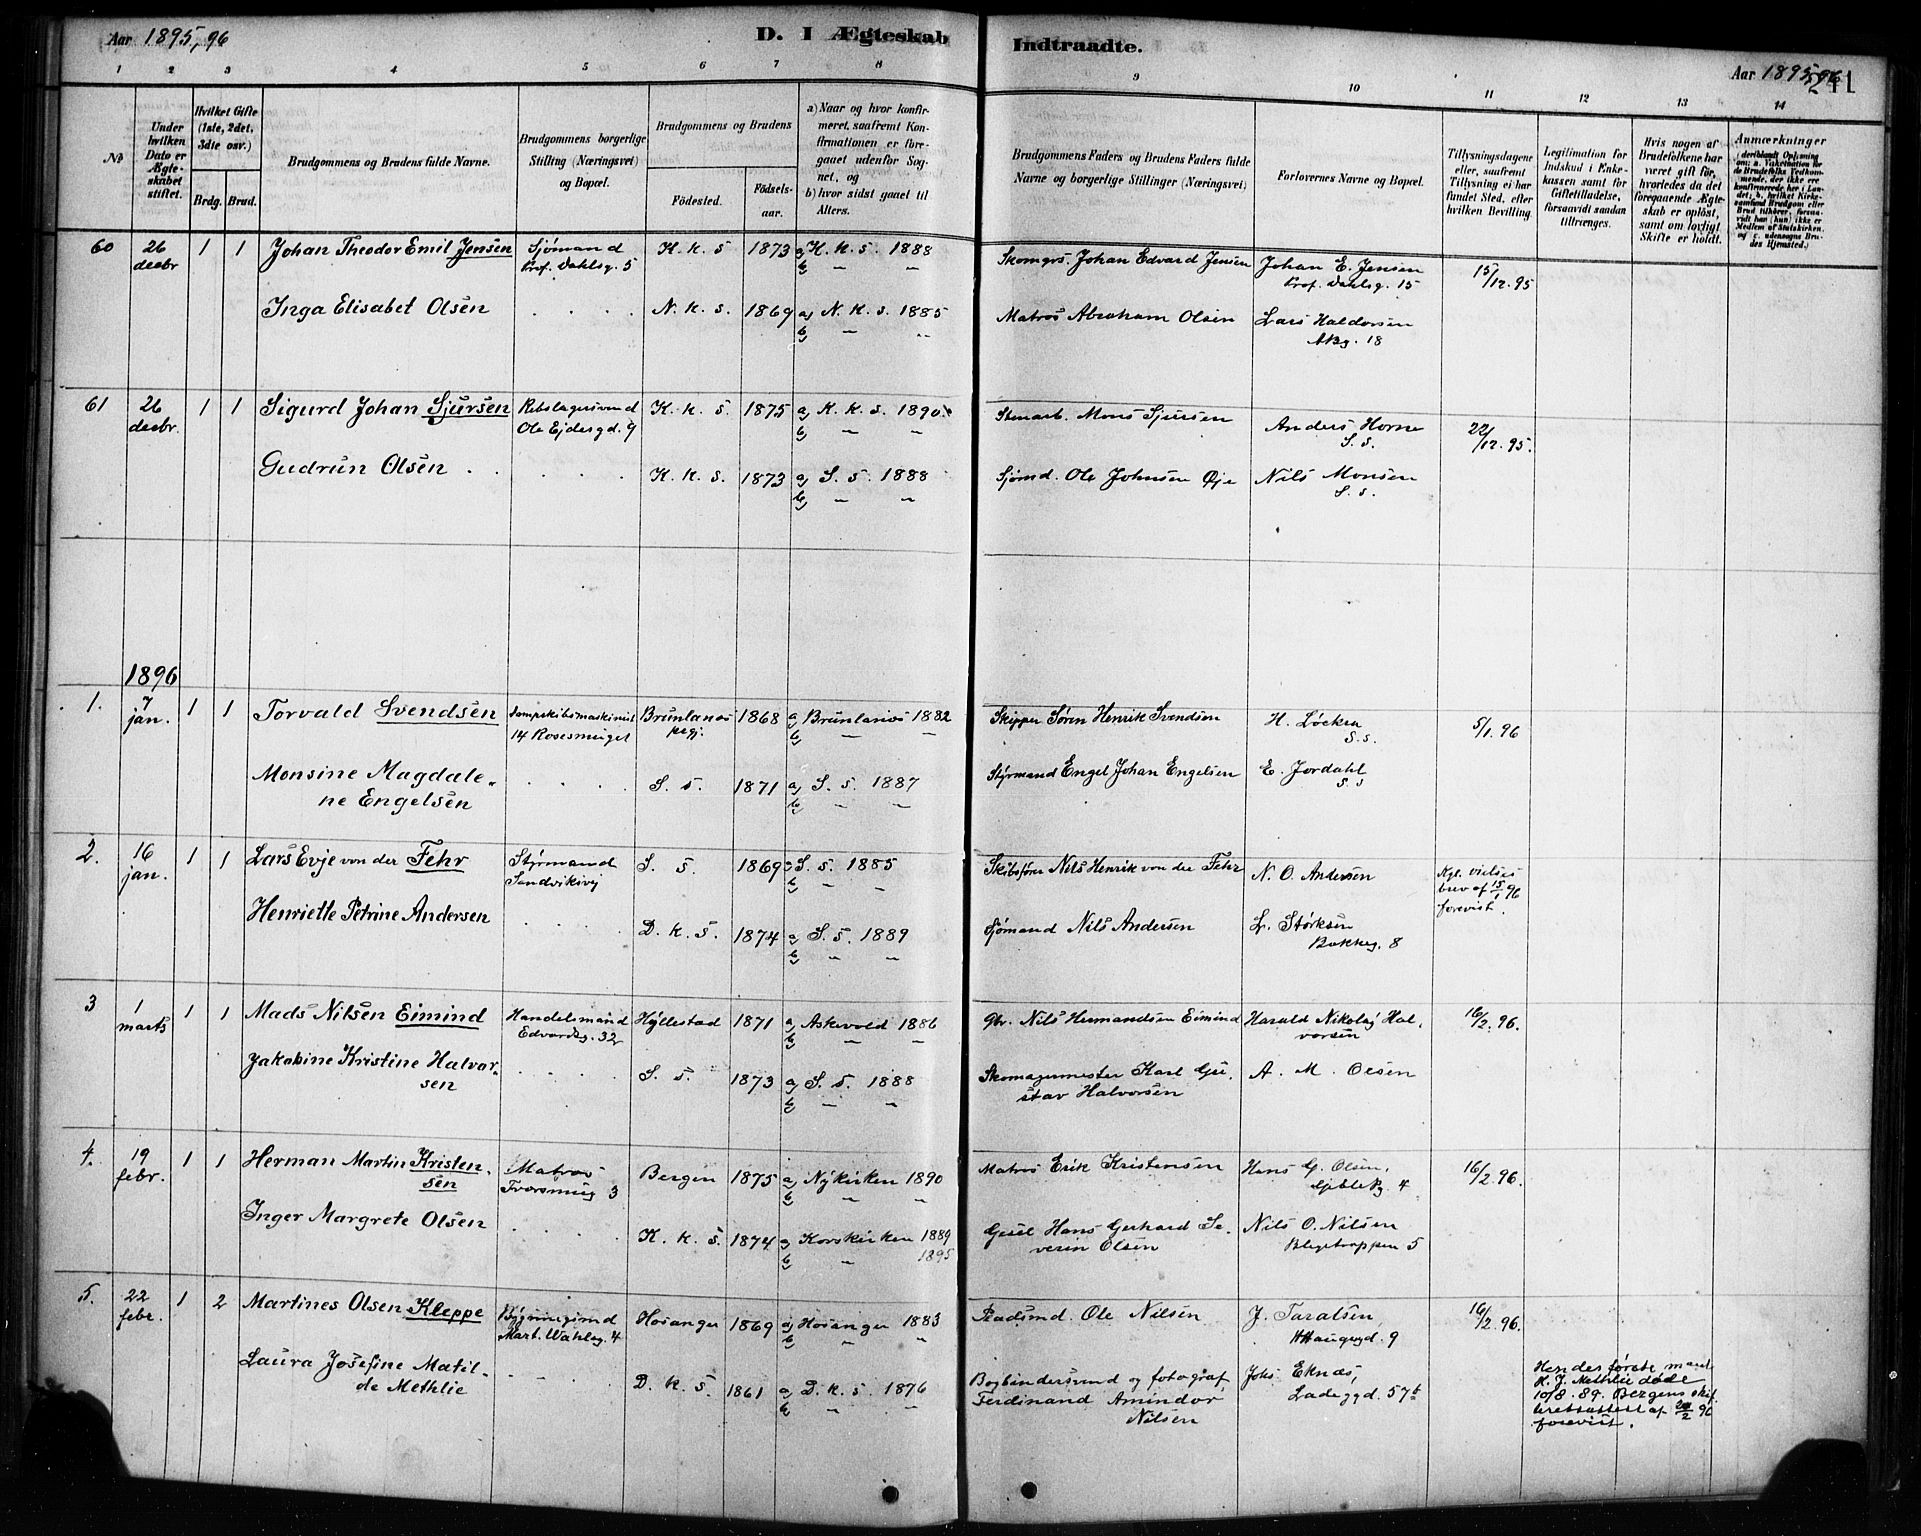 Aar 1895,96
D. I Ægteskab
Indtraadte.
Aar 1895,96
241
1 2 3 4 5 6 7 8 9 10 11 12 13 14
No
Under hvilken Dato er Ægteskabet stiftet.
Hvilket Gifte (1ste, 2det, 3die osv.)
Brdg. Brud.
Brudgommens og Brudens fulde Navne.
Brudgommens borgerlige Stilling (Næringsvei) og Bopæl.
Brudgommens og Brudens
Födested.
Födsels-aar.
a) Naar og hvor konfirmeret, saafremt Konfirmationen er foregaaet udenfor Sognet, og
b) hvor sidst gaaet til Alters.
Brudgommens Faders og Brudens Faders fulde Navne og borgerlige Stillinger (Næringsvei)
Forlovernes Navne og Bopæl.
Tillysningsdagene eller, saafremt Tillysning ei har fundet Sted, efter hvilken Bevilling.
Legitimation for Indskud i Enkekassen samt for Giftetilladelse, forsaavidt saadan tiltrænges.
Hvis nogen af Brudefolkene har været gift før, hvorledes da det foregaaende Ægteskab er oplöst, samt om lovligt Skifte er holdt.
Anmærkninger
60 26 decbr 1 1 Johan Theodor Emil Jensen Sjømand Prof. Dahlsg. 5 K. k. s. 1873 a) K. k. s. 1888 b) " " Johan Edvard Jensen Johan E. Jensen Prof. Dahlsg. 15 15/12.95
Inga Elisabet Olsen N. k. s. 1869 a) N. k. s. 1885 b) " " Matros Abraham Olsen Lars Haldorsen 18
61 26 decbr. 1 1 Sigurd Johan Sjursen Rebslagersvend Ole Ejdesgd. 9 K. k. s. 1875 a) K. k. s. 1890 b) " " Stenarb. Mons Sjursen Anders Horne S. s. 22/12.95.
Gudrun Olsen K. k. s. 1873 a) S. s. 1888 b) " " Sjømd. Ole Johnsen Øje Nils Monsen S. s.
1896
1. 7 jan. 1 1 Torvald Svendsen Dampskibsmaskinist 14 Rosesmuget Brunlanes prgj. 1868 a) Brunlanes 1882 b) " " Skipper Søren Henrik Svendsen H. Løckra S.s. 5/1.96
Monsine Magdalene Engelsen S. s. 1871 a) S. s. 1887 b) " " Styrmand Engel Johan Engelsen E. Jordahl S.s
2. 16 jan. 1 1 Lars Evje von der Fehr Styrmand Sandviksvej S. s. 1869 a) S. s. 1885 b) " " Skibsfører Nils Henrik von der Fehr N. O. Andersen Kgl. vielsesbrev af 15/1 96 forevist.
Henriette Petrine Andersen D. k. s. 1874 a) S. s. 1889 b) " " Sjømand Nils Andersen L. Størksen Bakkeg. 8
3 1 marts 1 1 Mads Nilsen Eimind Handelsmand Edvardsg. 32 Hyllestad 1871 a) Askevold 1886 b) " " Gbr. Nils Hermandsen Eimind Harald Nikolaj Halvorsen 16/2.96.
Jakobine Kristine Halvorsen S. s. 1873 a) S. s. 1888 b) " " Skomagermester Karl Gustav Halvorsen A. M. Olsen
4. 19 febr. 1 1 Herman Martin Kristensen Matros Tværsmug 3 Bergen 1875 a) Nykirken 1890 b) " " Matros Erik Kristensen Hans G. Olsen, 4 16/2.96.
Inger Margrete Olsen K. k. s. 1874 a) Korskirken 1889 b) " 1895 Gesel Hans Gerhard Severin Olsen Nils O. Nilsen Blegetrappen 5
5. 22 febr. 1 2 Martines Olsen Kleppe Bygningssnd Mart. Wahlsg. 4 Hosanger 1869 a) Hosanger 1883 b) " " Pladsmd. Ole Nilsen J. Taralsen, Haugegd. 9 16/2.96.
Laura Josefine Matilde Methlie D. k. s. 1861 a) D. k. s. 1876 b) " " Bogbindersvend og fotograf Ferdinand Amindor Nilsen Johs Eknæs, Ladeggd. 57b
Hendes første mand H. J. Methlie døde 10/8. 89. Bergens skifteretsattest af 20/2 96 forevist.